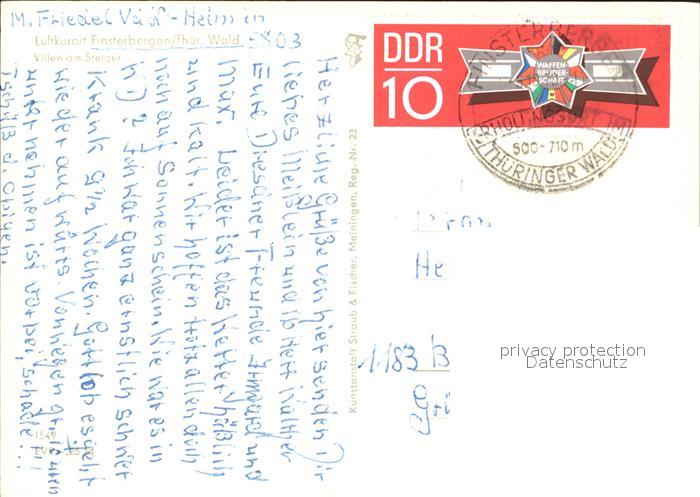 M. Friedel Heim in
Luftkurort Finsterbergen/Thür. Wald
5803
Villen am Steiger
Herzliche Grüße von hier senden Dir
liebes Meißlein und lb Herz Walther
Eure Dresdner Freunde Irmgard und
Max. Leider ist das Wetter häßlich
und kalt. Wir hoffen trotz allen doch
noch auf Sonnenschein. Wie war es in
? Ich war ganz ernstlich schwer
Krank 9½ Wochen. Gottlob es geht
wieder aufwärts. Von
unternehmen ist vorbei, schade!!!
Tschüß d. Obigen.
1549
Kunstanstalt Straub & Fischer, Meiningen, Reg.-Nr. 23
DDR
10
WAFFEN-
BRÜDER-
SCHAFT
FINSTERBERGEN
ERHOLUNGSORT IM
500-710 m
THÜRINGER WALD
He
1183 B
privacy protection
Datenschutz